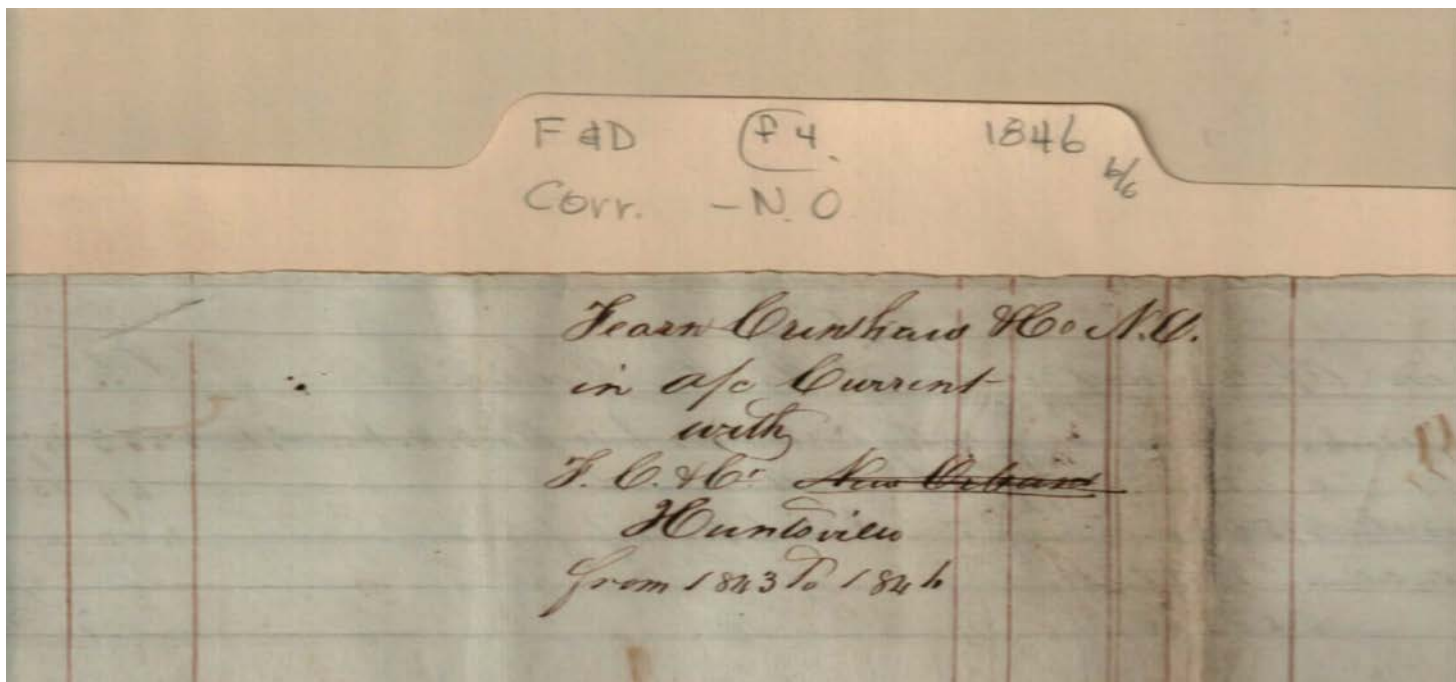 F &D (f 4. 1846 6/6
Corr. - N.O
Fearn Crenshaw & Co N.O.
in a/c Current
with
F. C. & Co New Orleans
Huntsville
from 1843 To 1846